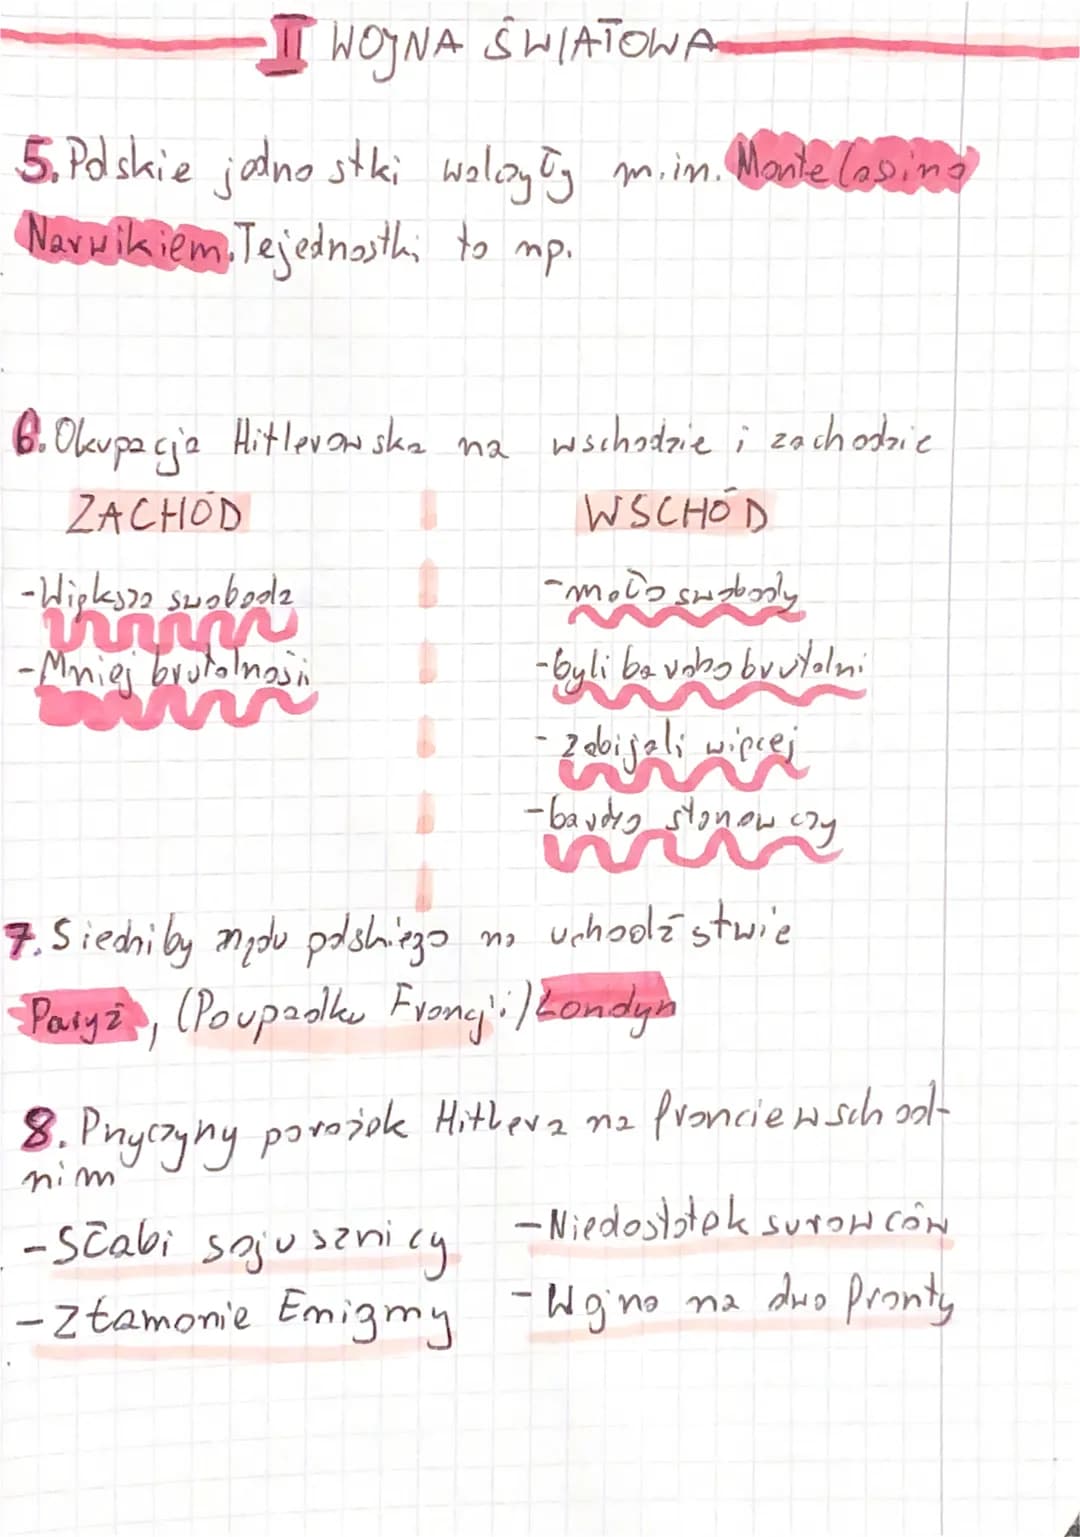 II WOJNA ŚWIATOWA
5. Polskie jednostki walczyły m.in. Monte Casino
Narwikiem. Te jednostki to np.
6. Okupacja Hitlerowska na wschodzie i zachodzie
ZACHÓD WSCHÓD
-Większa swoboda -mało swobody
-Mniej brutalności -byli bardzo brutalni
- zabijali więcej
-bardzo stanowczy
7. Siedziby rządu polskiego na uchodźstwie
Paryż, (Po upadku Francji) Londyn
8. Przyczyny porażek Hitlera na froncie wschod-
nim
-Słabi sojusznicy -Niedostatek surowców
-Złamanie Enigmy -Wojna na dwa fronty